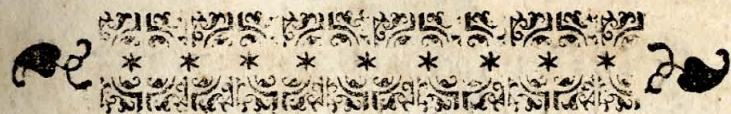 * * * * * * * * *